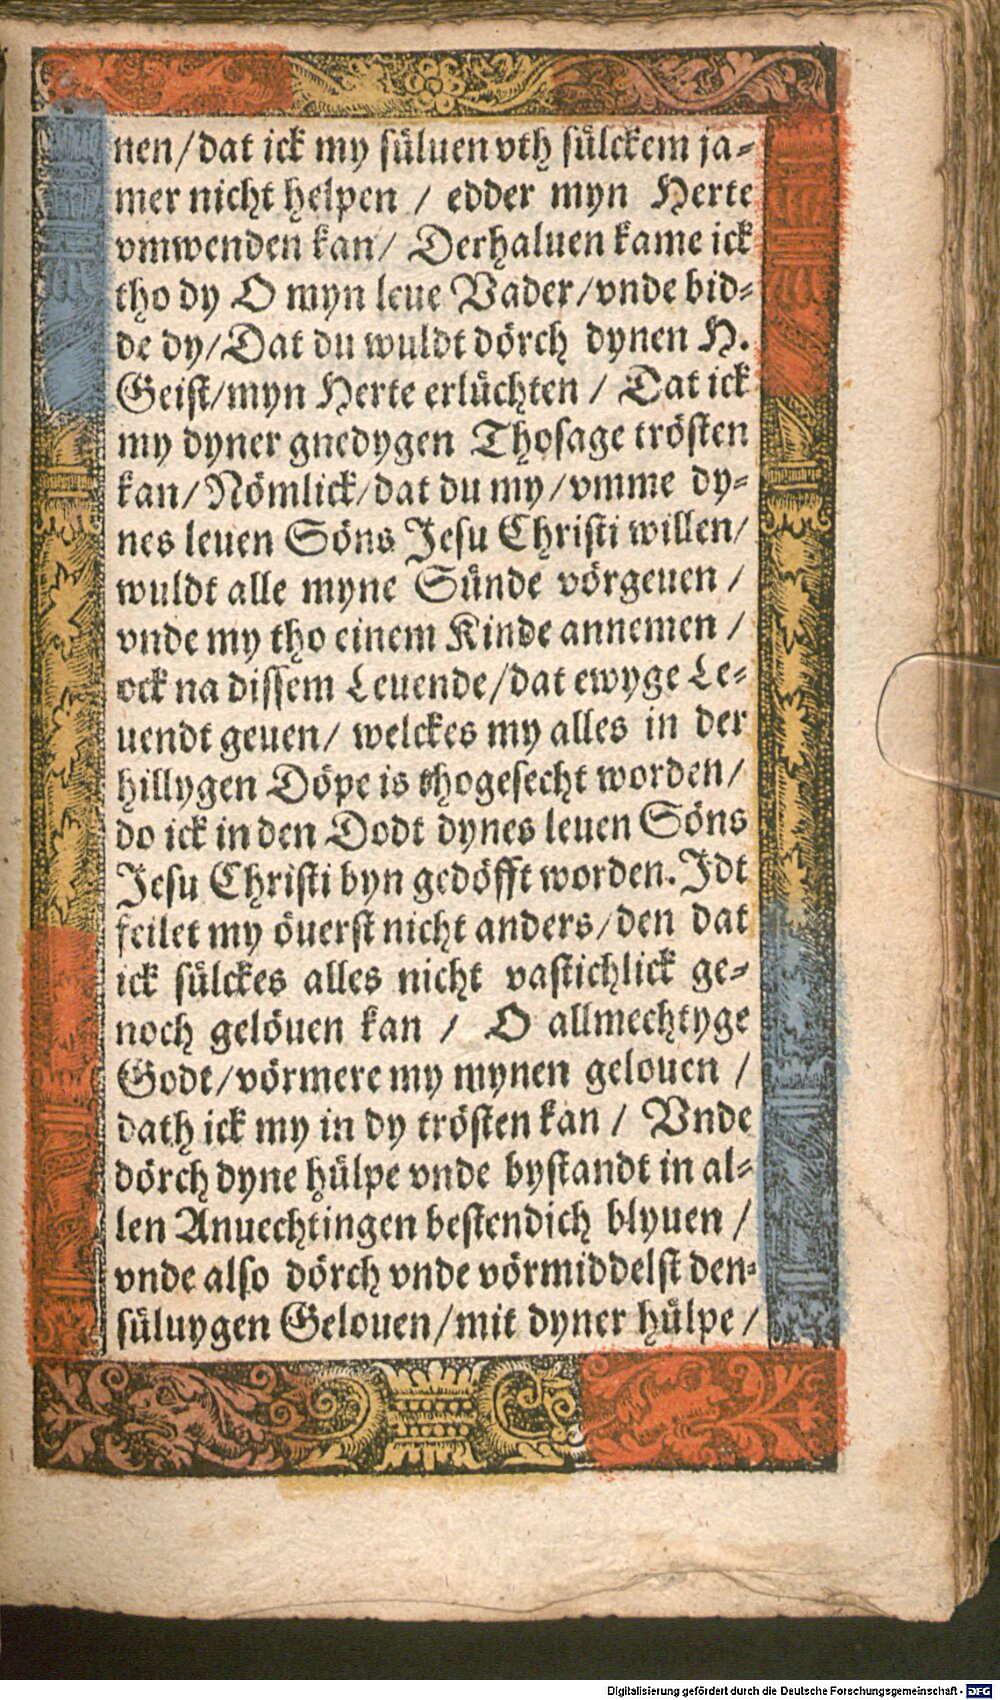 nen/dat ick my süluen vth sülckem ja-
mer nicht helpen / edder myn Herte
vmwenden kan/ Derhaluen kame ick
tho dy O myn leue Vader/vnde bid-
de dy/Dat du wuldt dörch dynen H.
Geist/myn Herte erlüchten / Dat ick
my dyner gnedygen Thosage trösten
kan/Nömlick/dat du my/vmme dy-
nes leuen Söns Jesu Christi willen/
wuldt alle myne Sünde vörgeuen /
vnde my tho einem Kinde annemen /
ock na dissem Leuende/dat ewyge Le-
uendt geuen/ welckes my alles in der
hillygen Döpe is thogesecht worden/
do ick in den Dodt dynes leuen Söns
Jesu Christi byn gedöfft worden. Jdt
feilet my öuerst nicht anders/den dat
ick sülckes alles nicht vastichlick ge-
noch gelöuen kan / O allmechtyge
Godt/vörmere my mynen gelouen /
dath ick my in dy trösten kan / Vnde
dörch dyne hülpe vnde bystandt in al-
len Anuechtingen bestendich blyuen /
vnde also dörch vnde vörmiddelst den-
süluygen Gelouen/mit dyner hülpe /
Digitalisierung gefördert durch die Deutsche Forschungsgemeinschaft - DFG